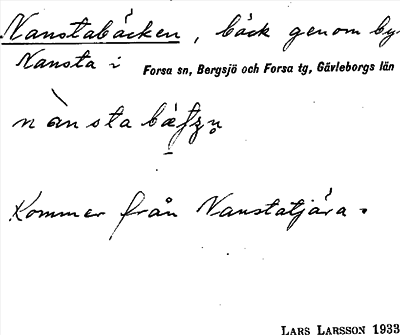 Nanstabäcken, bäck genom by
Nansta i Forsa sn, Bergsjö och Forsa tg, Gävleborgs län
Kommer från Nanstatjära.
LARS LARSSON 1933